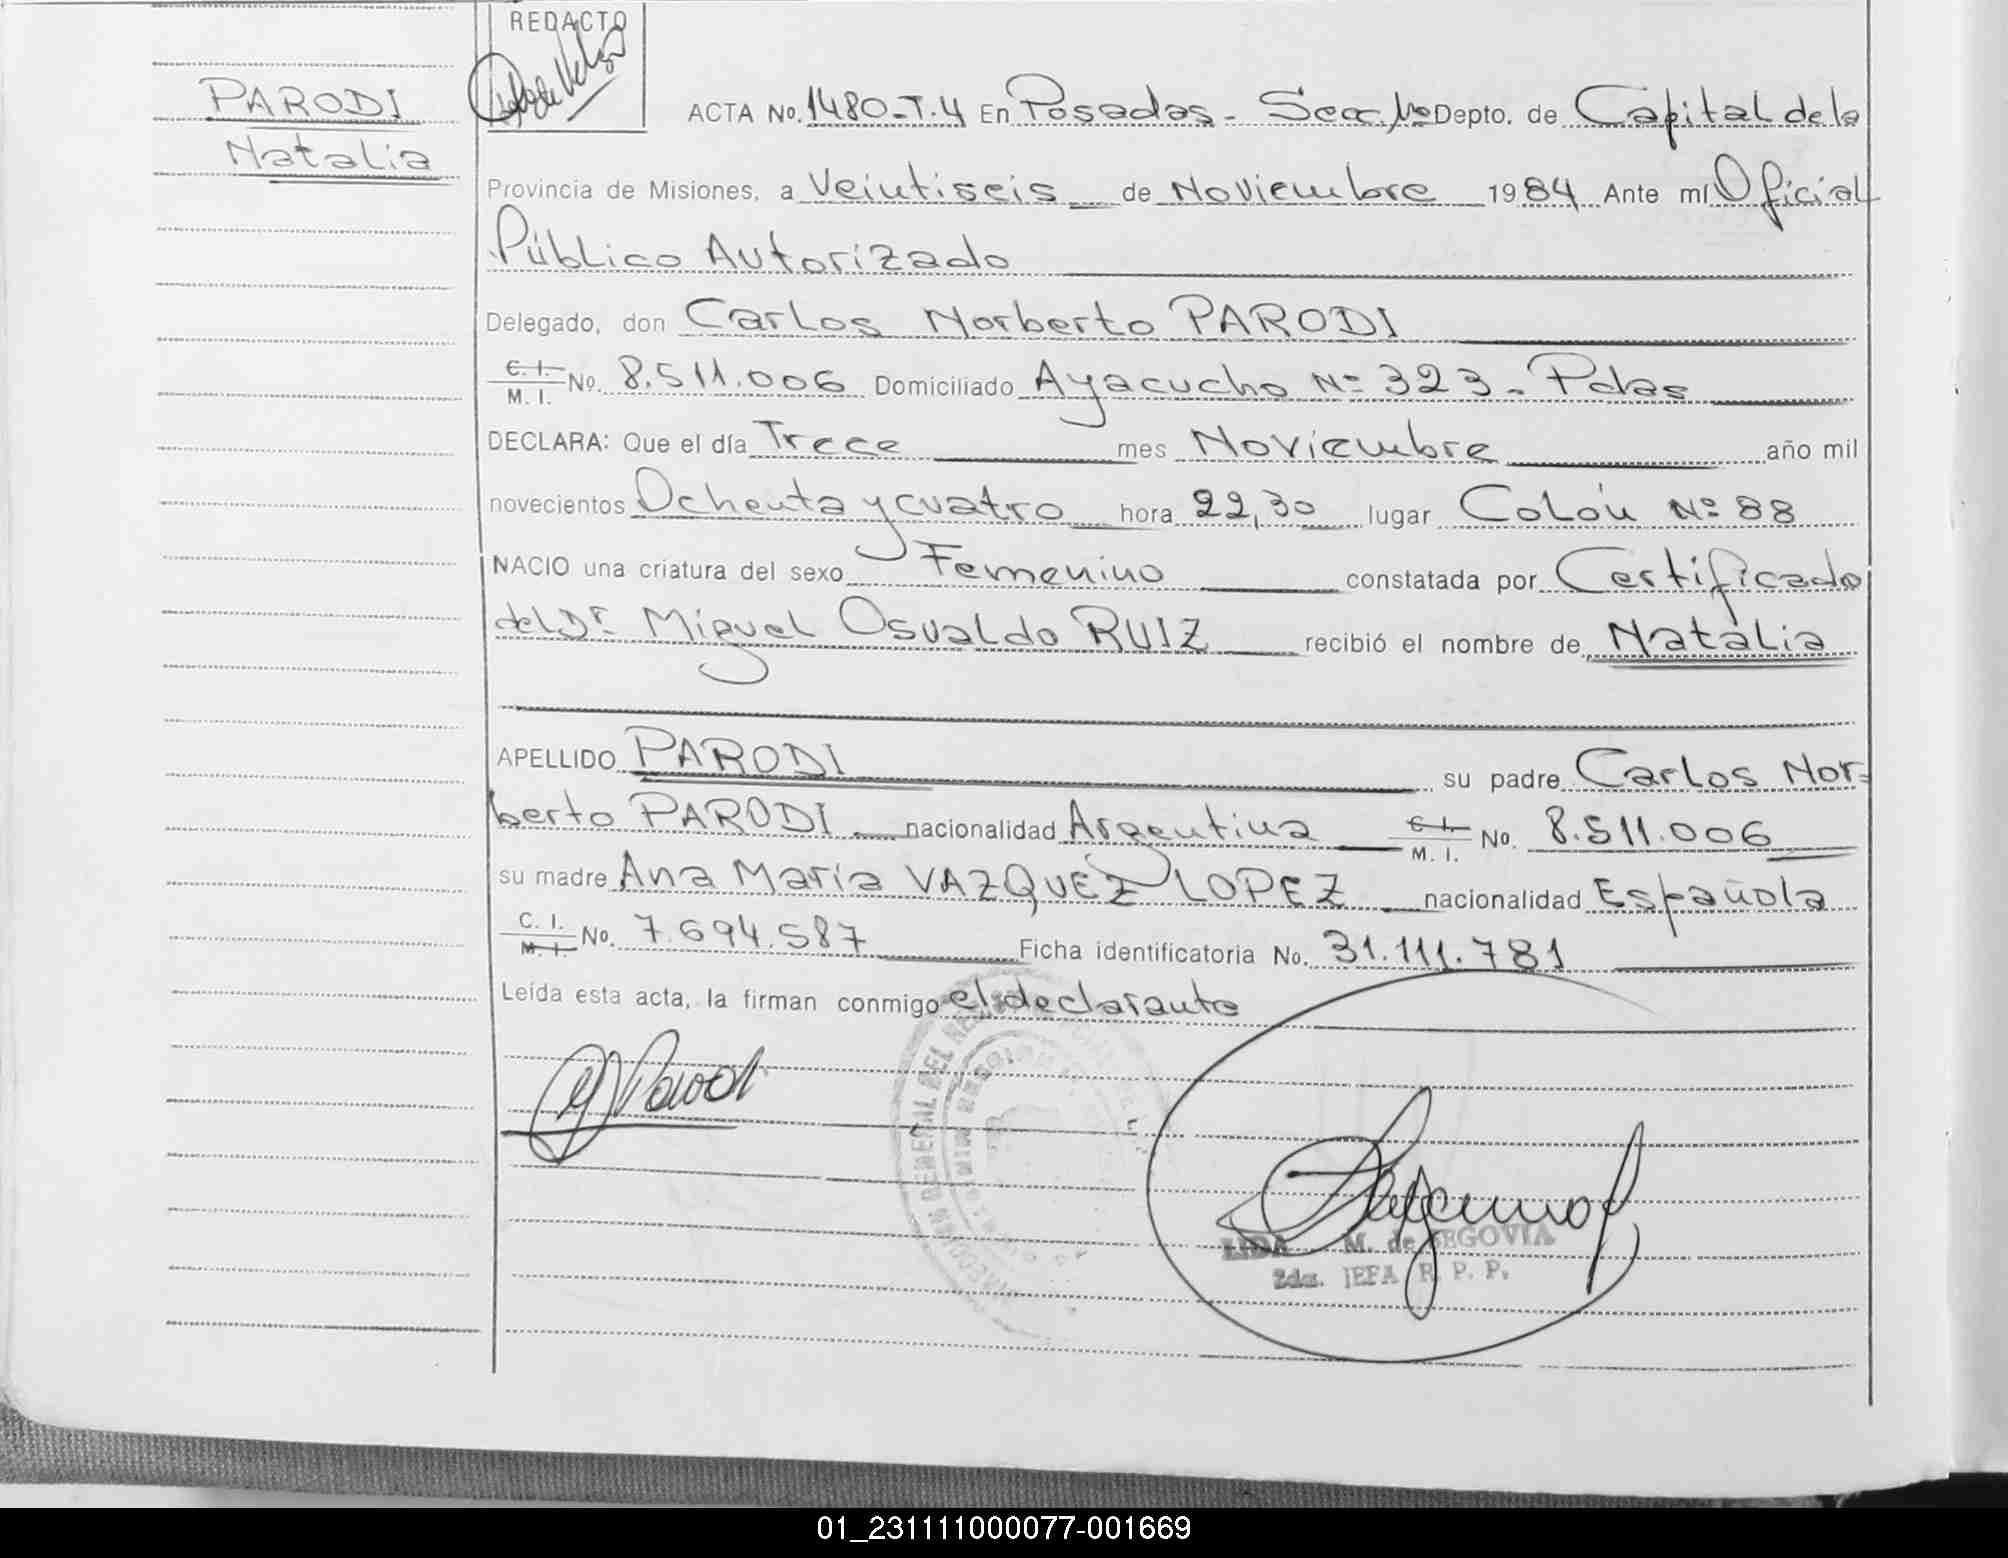 REDACTO
PARODI
Natalia
ACTA No. 1480-T.4 En Posadas - Secc. 1ra Depto. de Capital de la
Provincia de Misiones, a Veintiseis de Noviembre 1984 Ante mí Oficial
Público Autorizado
Delegado, don Carlos Norberto PARODI
C. I. M. I. No. 8.511.006 Domiciliado Ayacucho Nº 323 - Pdas
DECLARA: Que el día Trece mes Noviembre año mil
novecientos Ochenta y cuatro hora 22,30 lugar Colón Nº 88
NACIO una criatura del sexo Femenino constatada por Certificado
del Dr. Miguel Osvaldo RUIZ recibió el nombre de Natalia
APELLIDO PARODI su padre Carlos Nor=
berto PARODI nacionalidad Argentina C. I. M. I. No. 8.511.006
su madre Ana María VAZQUEZ LOPEZ nacionalidad Española
C. I. M. I. No. 7.694.587 Ficha identificatoria No. 31.111.781
Leída esta acta, la firman conmigo el declarante
Parodi
DIRECCION GENERAL DEL REGISTRO
LIDA M. de SEGOVIA
2da. JEFA R. P. P.
01_231111000077-001669